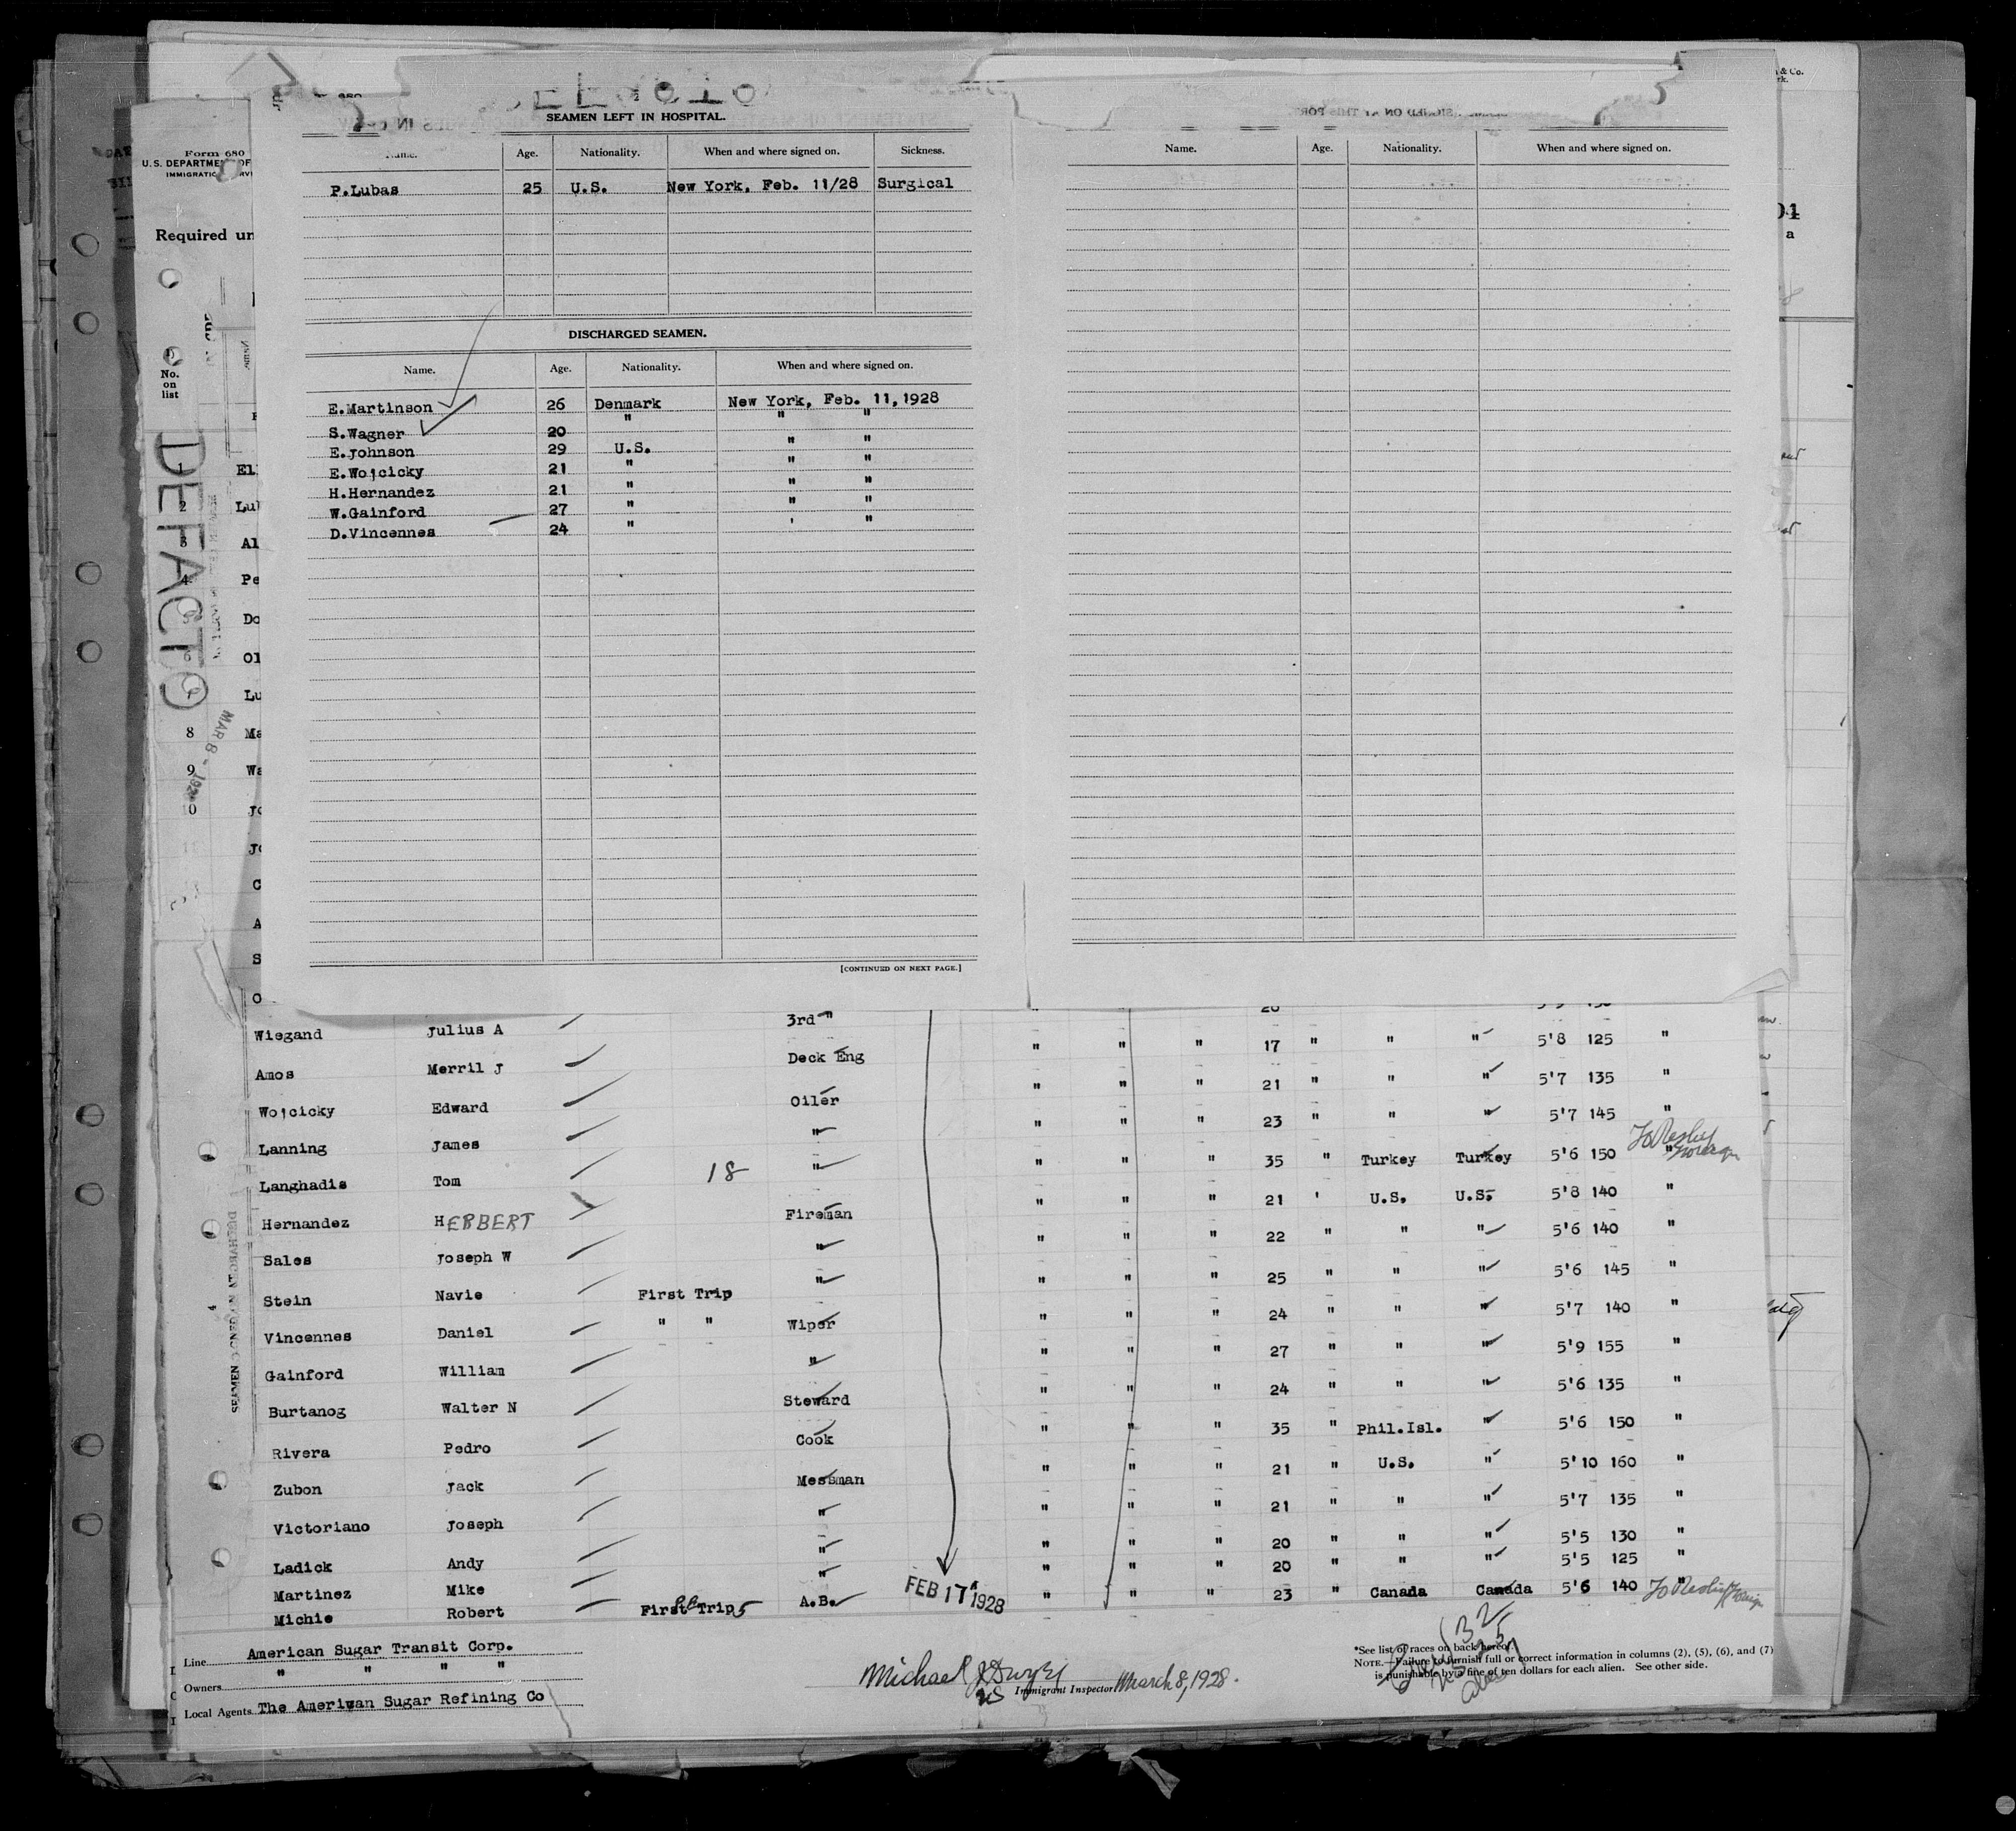 SEAMEN LEFT IN HOSPITAL.
Name. Age. Nationality. When and where signed on. Sickness.
P.Lubas 25 U.S. New York, Feb. 11/28 Surgical
DISCHARGED SEAMEN.
Name. Age. Nationality. When and where signed on.
E.Martinson 26 Denmark New York, Feb. 11,1928
S.Wagner 20 " " "
E.Johnson 29 U.S. " "
E.Wojcicky 21 " " "
H.Hernandez 21 " " "
W.Gainford 27 " " "
D.Vincennes 24 " ' "
[CONTINUED ON NEXT PAGE.]
Name. Age. Nationality. When and where signed on.
Form 680
U.S. DEPARTMENT OF
Required un
No.
on
list
DE FACTO
MAR 8 - 192
1 El
2 Lu
3 Al
4 Pe
Do
Ol
Lu
8 Ma
9 Wa
0 Jo
Jo
C
A
S
O
& Co.
a
Wiegand Julius A 3rd " " " " 17 " " " 5'8 125 "
Amos Merril J Deck Eng " " " 21 " " " 5'7 135 "
Wojcicky Edward Oiler " " " 23 " " " 5'7 145 "
Lanning James " " " " 35 " Turkey Turkey 5'6 150 "
Langhadis Tom 18 " " " " 21 ' U.S. U.S. 5'8 140 "
Hernandez HERBERT Fireman " " " 22 " " " 5'6 140 "
Sales Joseph W " " " " 25 " " " 5'6 145 "
Stein Navie First Trip " " " " 24 " " " 5'7 140 "
Vincennes Daniel " " Wiper " " " 27 " " " 5'9 155 "
Gainford William " " " " 24 " " " 5'6 135 "
Burtanog Walter N Steward " " " 35 " Phil.Isl. " 5'6 150 "
Rivera Pedro Cook " " " 21 " U.S. " 5'10 160 "
Zubon Jack Messman " " " 21 " " " 5'7 135 "
Victoriano Joseph " " " " 20 " " " 5'5 130 "
Ladick Andy " " " " 20 " " " 5'5 125 "
Martinez Mike " " " " 23 " Canada Canada 5'6 140 "
Michie Robert First Trip A.B. FEB 17 1928
Line American Sugar Transit Corp.
Owners " " " "
Local Agents The Ameriwan Sugar Refining Co
Michael J Dwyer
Immigrant Inspector. March 8, 1928.
*See list of races on back hereof.
NOTE.—Failure to furnish full or correct information in columns (2), (5), (6), and (7)
is punishable by a fine of ten dollars for each alien. See other side.